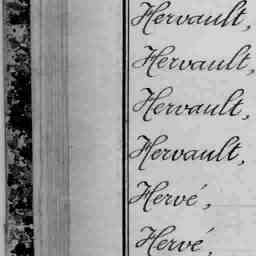 Hervault,
Hervault,
Hervault,
Hervault,
Hervé,
Hervé,